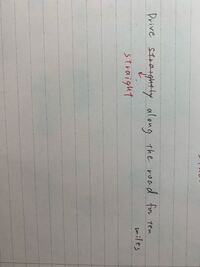 Drive straightly along the road for ten miles
straight